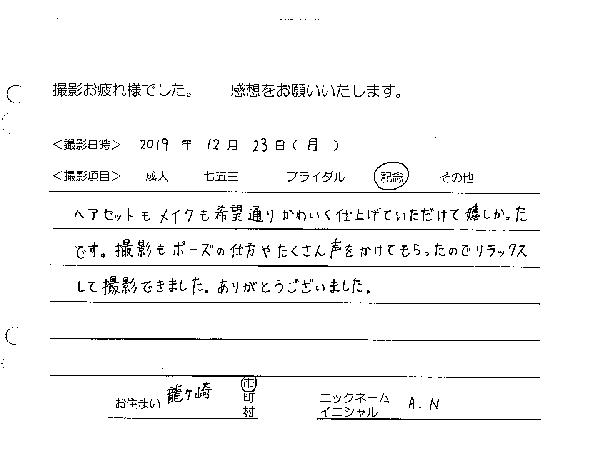 撮影お疲れ様でした。　感想をお願いいたします。
＜撮影日時＞ 2019 年 12 月 23 日（ 月 ）
＜撮影項目＞ 成人 七五三 ブライダル 記念 その他
ヘアセットも メイクも 希望通り かわいく 仕上げていただけて 嬉しかった
です。撮影も ポーズの仕方や たくさん 声を かけてもらったので リラックス
して 撮影できました。ありがとうございました。
お住まい 龍ヶ崎 市 町 村
ニックネーム イニシャル A. N